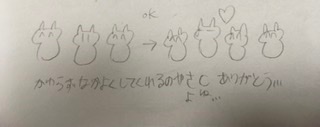 OK
かわらずなかよくしてくれるのやさし ありがとう...
よね...